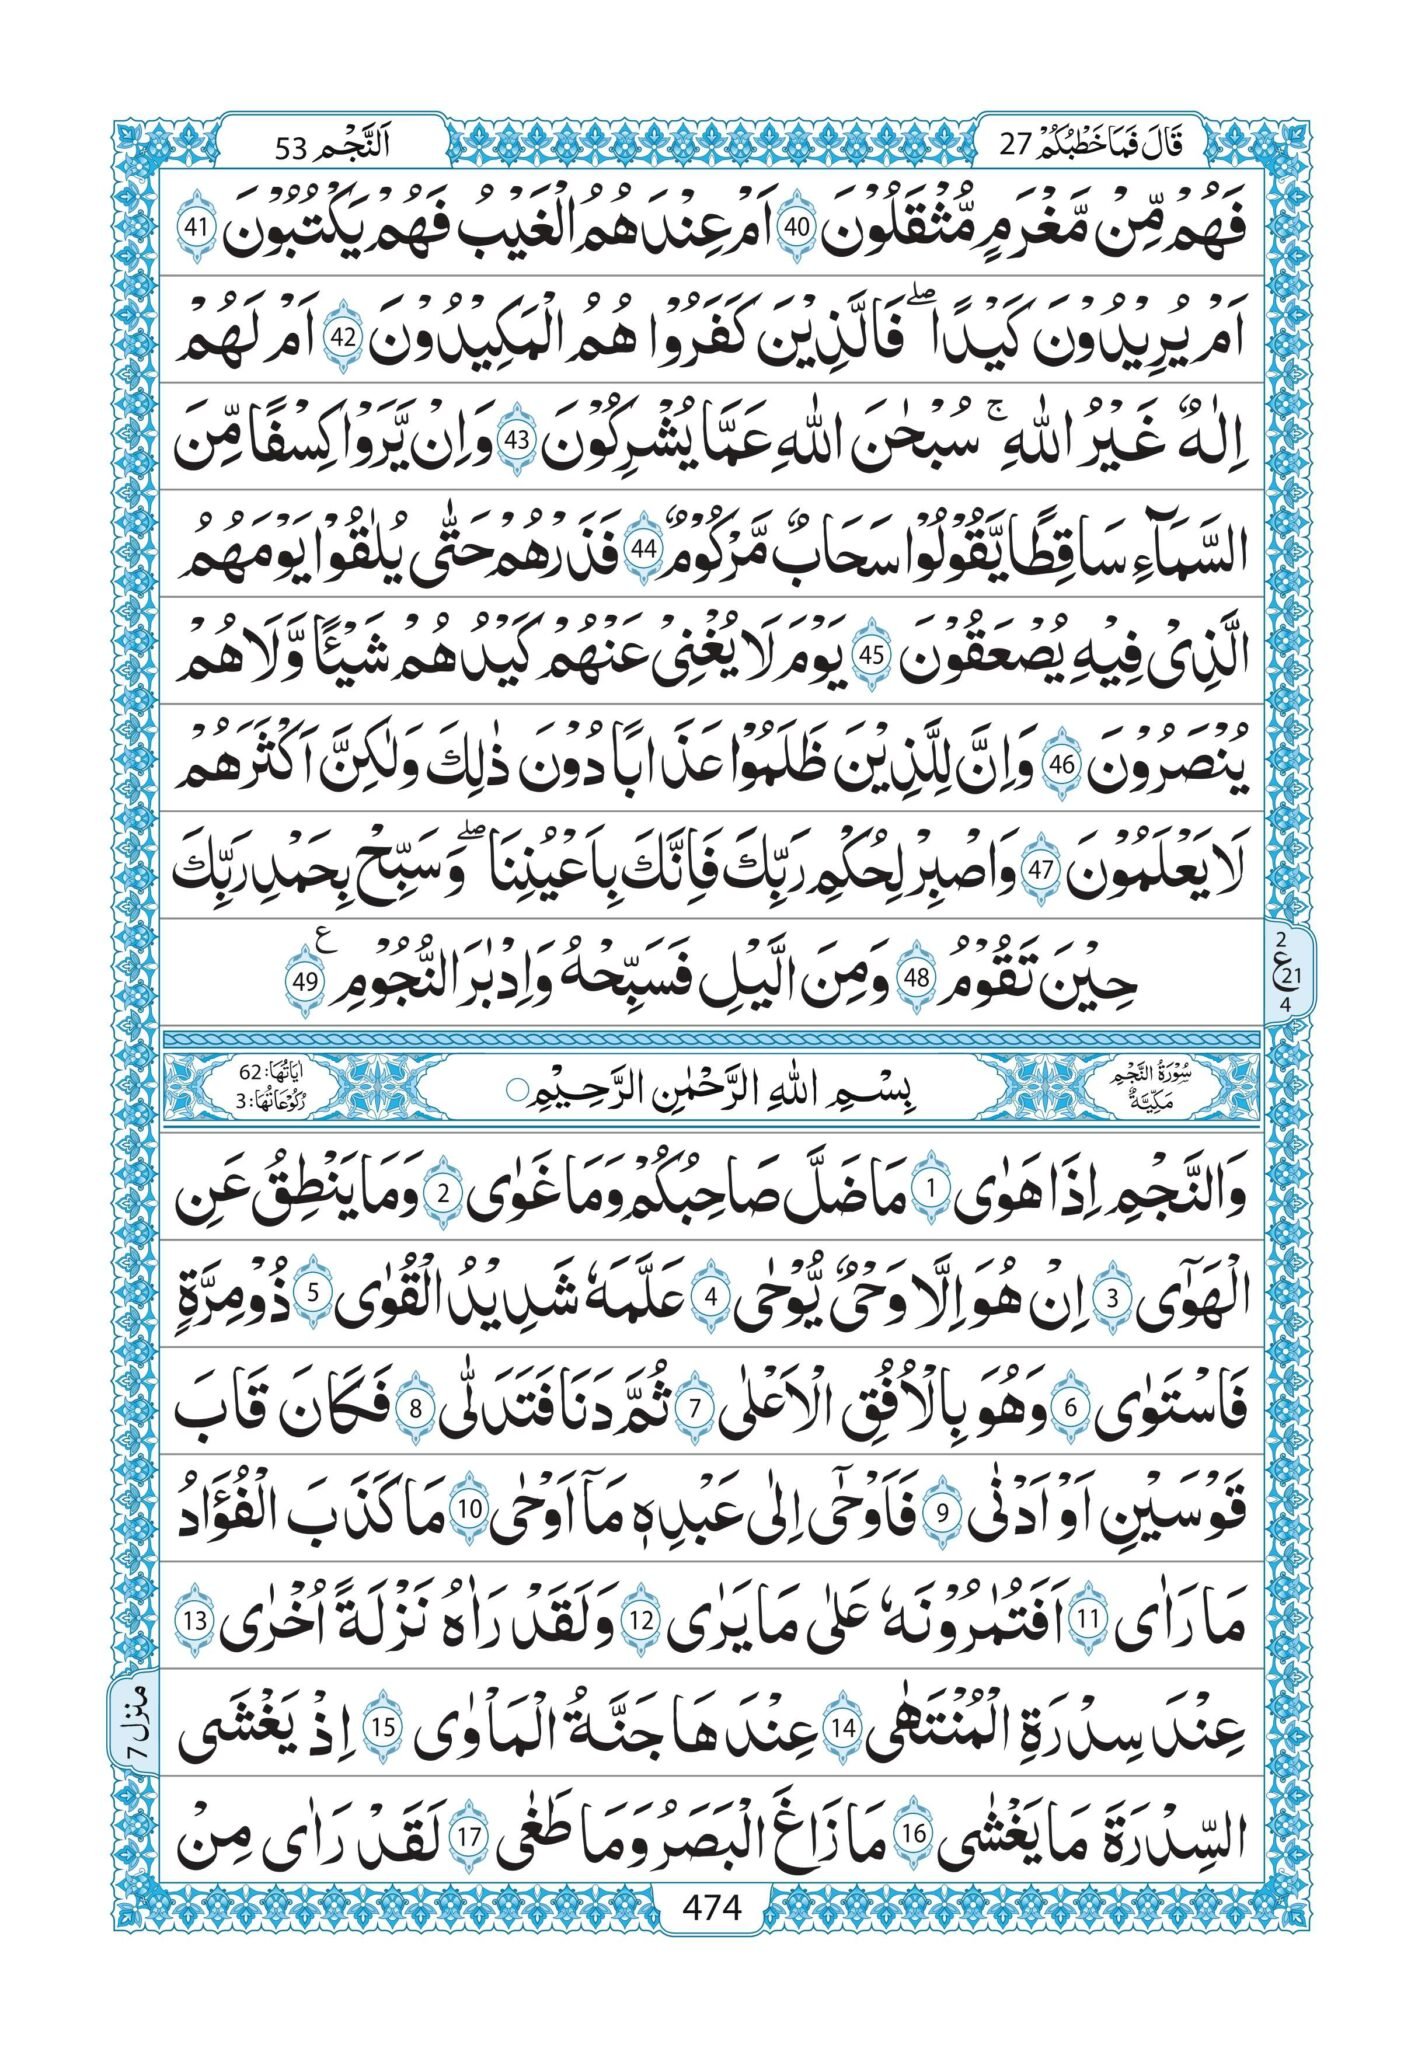 قَالَ فَمَا خَطْبُكُمْ 27
اَلنَّجْم 53
فَهُمْ مِّنْ مَّغْرَمٍ مُّثْقَلُوْنَ 40 اَمْ عِنْدَهُمُ الْغَيْبُ فَهُمْ يَكْتُبُوْنَ 41
اَمْ يُرِيْدُوْنَ كَيْدًا ۖ فَالَّذِيْنَ كَفَرُوْا هُمُ الْمَكِيْدُوْنَ 42 اَمْ لَهُمْ
اِلٰهٌ غَيْرُ اللّٰهِ ۚ سُبْحٰنَ اللّٰهِ عَمَّا يُشْرِكُوْنَ 43 وَاِنْ يَّرَوْا كِسْفًا مِّنَ
السَّمَآءِ سَاقِطًا يَّقُوْلُوْا سَحَابٌ مَّرْكُوْمٌ 44 فَذَرْهُمْ حَتّٰى يُلٰقُوْا يَوْمَهُمُ
الَّذِىْ فِيْهِ يُصْعَقُوْنَ 45 يَوْمَ لَا يُغْنِىْ عَنْهُمْ كَيْدُهُمْ شَيْـًٔا وَّلَا هُمْ
يُنْصَرُوْنَ 46 وَاِنَّ لِلَّذِيْنَ ظَلَمُوْا عَذَابًا دُوْنَ ذٰلِكَ وَلٰكِنَّ اَكْثَرَهُمْ
لَا يَعْلَمُوْنَ 47 وَاصْبِرْ لِحُكْمِ رَبِّكَ فَاِنَّكَ بِاَعْيُنِنَا ۖ وَسَبِّحْ بِحَمْدِ رَبِّكَ
حِيْنَ تَقُوْمُ 48 وَمِنَ الَّيْلِ فَسَبِّحْهُ وَاِدْبٰرَ النُّجُوْمِ ع 49
2
ع 21
4
سُوْرَةُ النَّجْمِ
مَكِّيَّةٌ
بِسْمِ اللّٰهِ الرَّحْمٰنِ الرَّحِيْمِ
اٰيَاتُهَا: 62
رُكُوْعَاتُهَا: 3
وَالنَّجْمِ اِذَا هَوٰى 1 مَا ضَلَّ صَاحِبُكُمْ وَمَا غَوٰى 2 وَمَا يَنْطِقُ عَنِ
الْهَوٰٓى 3 اِنْ هُوَ اِلَّا وَحْىٌ يُّوْحٰى 4 عَلَّمَهٗ شَدِيْدُ الْقُوٰى 5 ذُوْ مِرَّةٍ
فَاسْتَوٰى 6 وَهُوَ بِالْاُفُقِ الْاَعْلٰى 7 ثُمَّ دَنَا فَتَدَلّٰى 8 فَكَانَ قَابَ
قَوْسَيْنِ اَوْ اَدْنٰى 9 فَاَوْحٰٓى اِلٰى عَبْدِهٖ مَآ اَوْحٰى 10 مَا كَذَبَ الْفُؤَادُ
مَا رَاٰى 11 اَفَتُمٰرُوْنَهٗ عَلٰى مَا يَرٰى 12 وَلَقَدْ رَاٰهُ نَزْلَةً اُخْرٰى 13
عِنْدَ سِدْرَةِ الْمُنْتَهٰى 14 عِنْدَهَا جَنَّةُ الْمَاْوٰى 15 اِذْ يَغْشَى
السِّدْرَةَ مَا يَغْشٰى 16 مَا زَاغَ الْبَصَرُ وَمَا طَغٰى 17 لَقَدْ رَاٰى مِنْ
منزل 7
474